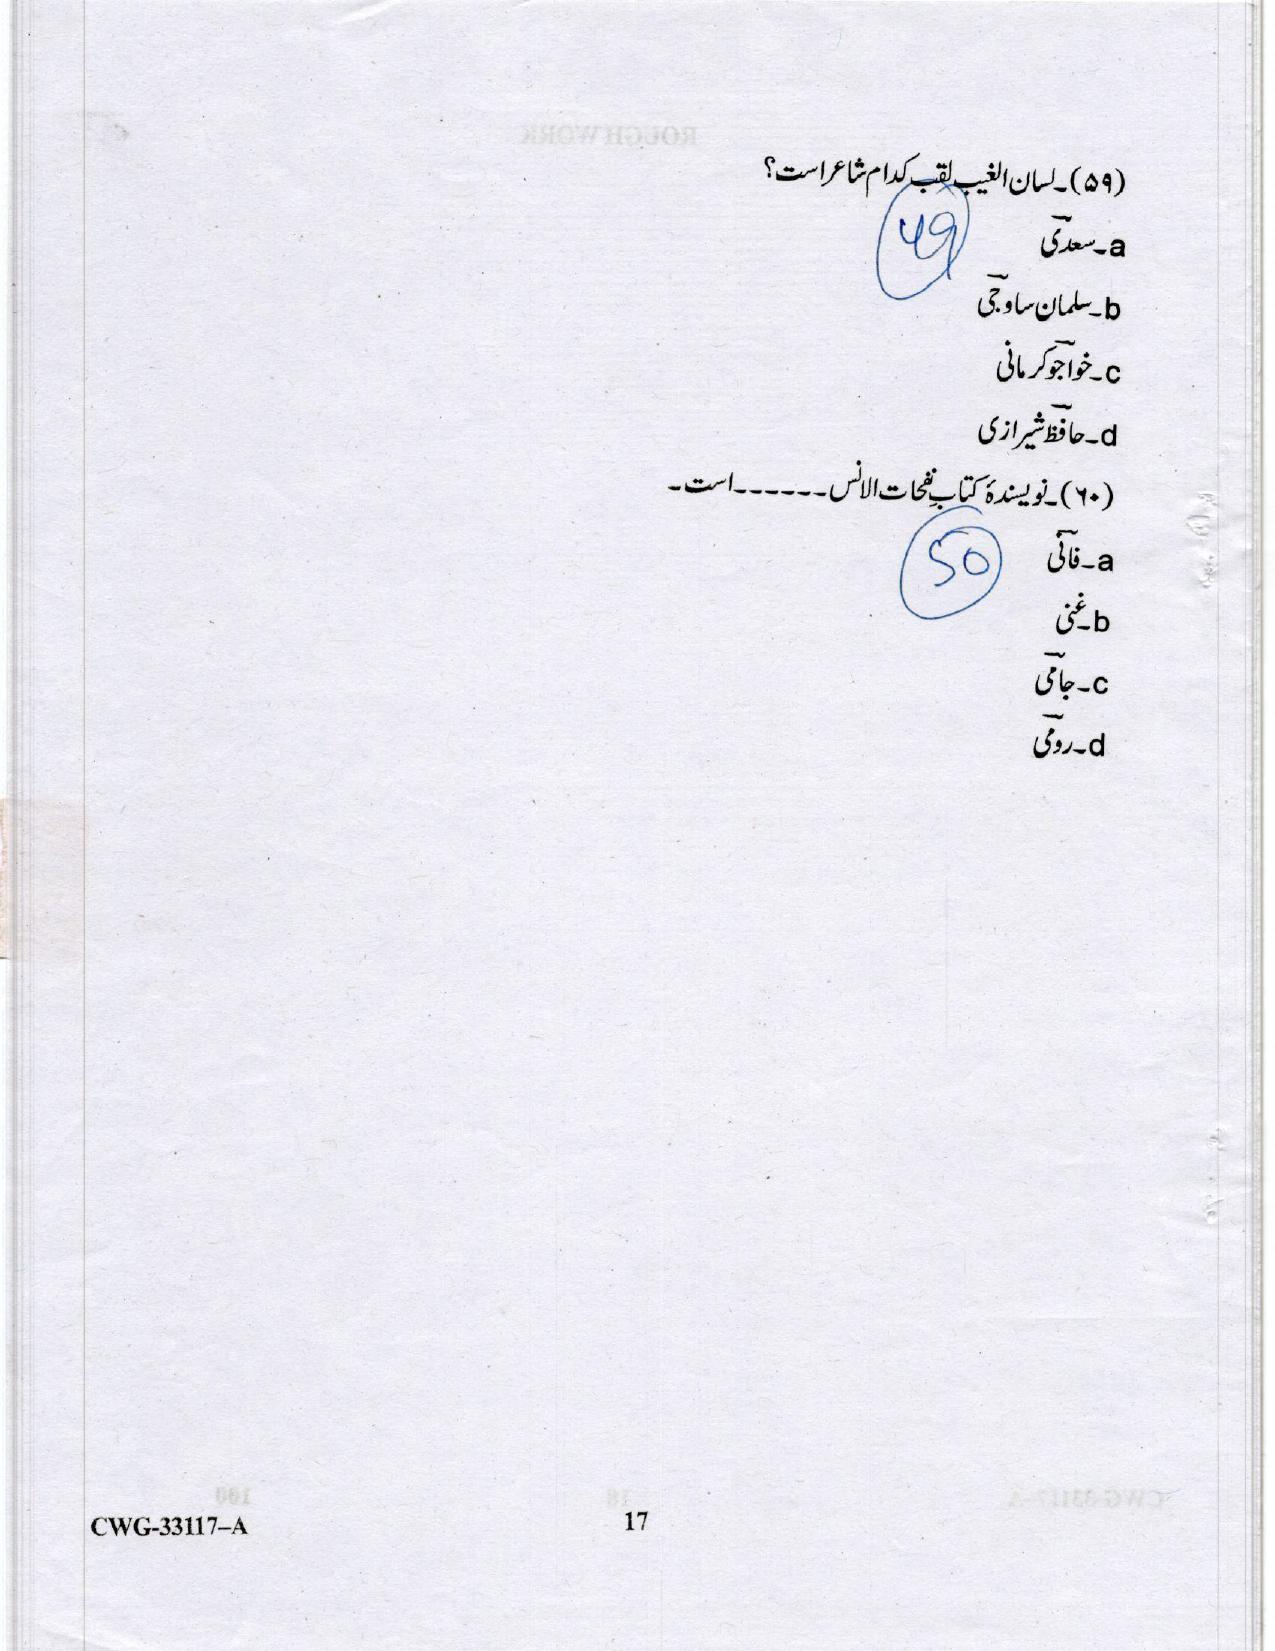 (۵۹)۔لسان الغیب لقب کدام شاعر است؟
a۔سعدؔی
49
b۔سلمان ساوجؔی
c۔خواجوؔ کرمانی
d۔حافظؔ شیرازی
(۶۰)۔نویسندۂ کتابِ نفحات الانس۔۔۔۔۔۔است۔
a۔فانؔی
50
b۔غنی
c۔جامؔی
d۔رومؔی
CWG-33117–A
17